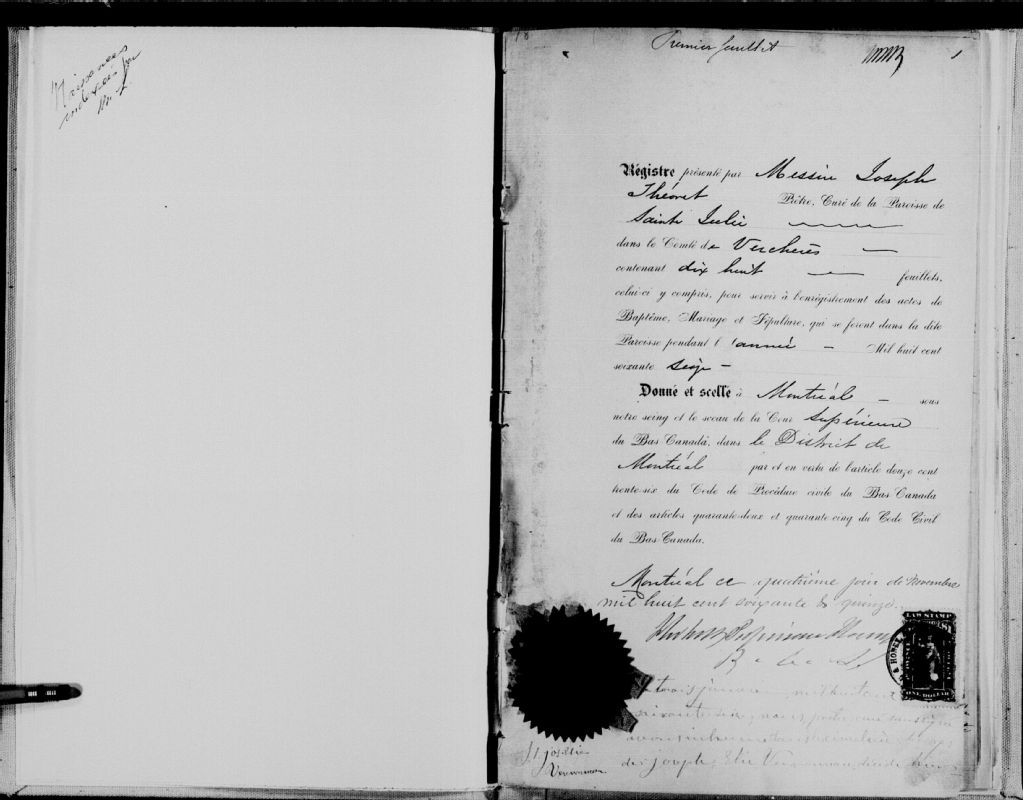 Naissances
indexées
Premier feuillet
1
Régistre présenté par Messire Joseph
Théoret Prêtre, Curé de la Paroisse de
Sainte Julie
dans le Comté de Verchères
contenant dix huit feuillets,
celui-ci y compris, pour servir à l'enrégistrement des actes de
Baptême, Mariage et Sépulture, qui se feront dans la dite
Paroisse pendant l'année Mil huit cent
soixante seize
Donné et scellé à Montréal sous
notre seing et le sceau de la Cour Supérieure
du Bas-Canada, dans le District de
Montréal par et en vertu de l'article douze cent
trente-six du Code de Procédure civile du Bas-Canada
et des articles quarante-deux et quarante-cinq du Code Civil
du Bas-Canada.
Montréal ce quatrième jour de Novembre
mil huit cent soixante & quinze.
LAW STAMP
ONE DOLLAR
trois janvier, mil huit cent
soixante seize, nous, prêtre curé soussigné
avons inhumé
de Joseph Elie